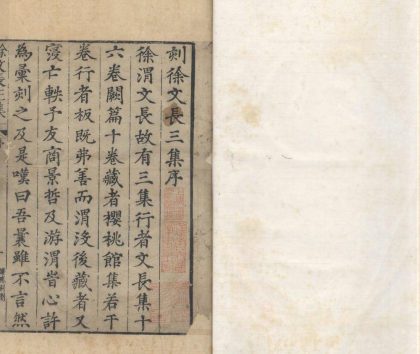 刻徐文長三集序
徐渭文長故有三集行者文長集十
六卷闕篇十卷藏者櫻桃館集若干
卷行者板既弗善而渭沒後藏者又
寖亡軼予友商景哲及游渭旹心許
為彙刻之及是嘆曰吾曩雖不言然
徐文長三集